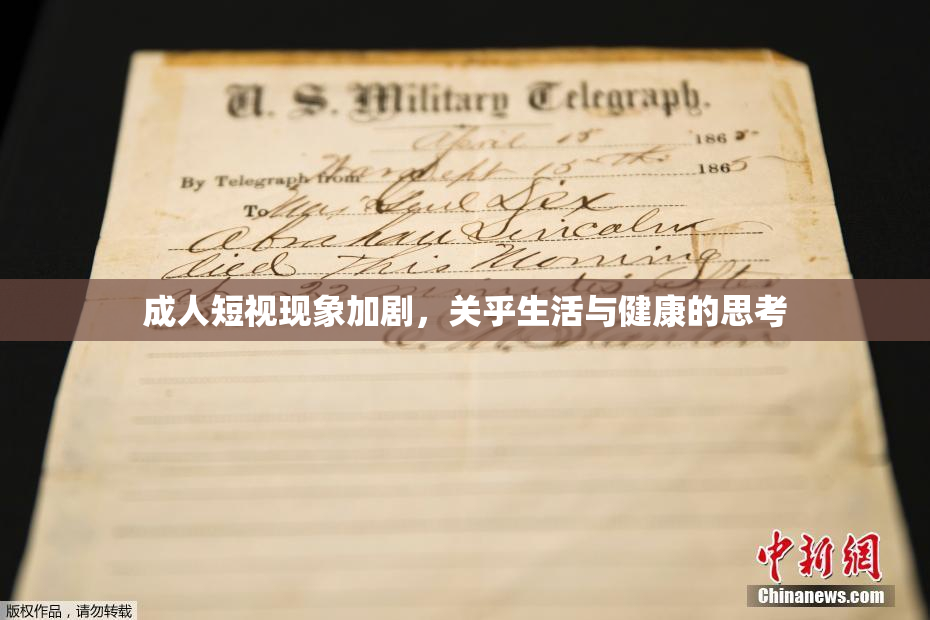 U. S. Military Telegraph.
April 15 1865
By Telegraph from War Dept 15th 1865
To Maj Genl Dix
Abraham Lincoln
died This Morning
at 22 minutes after
成人短视现象加剧，关乎生活与健康的思考
E. M. Stanton
中新網
Chinanews.com
版权作品，请勿转载